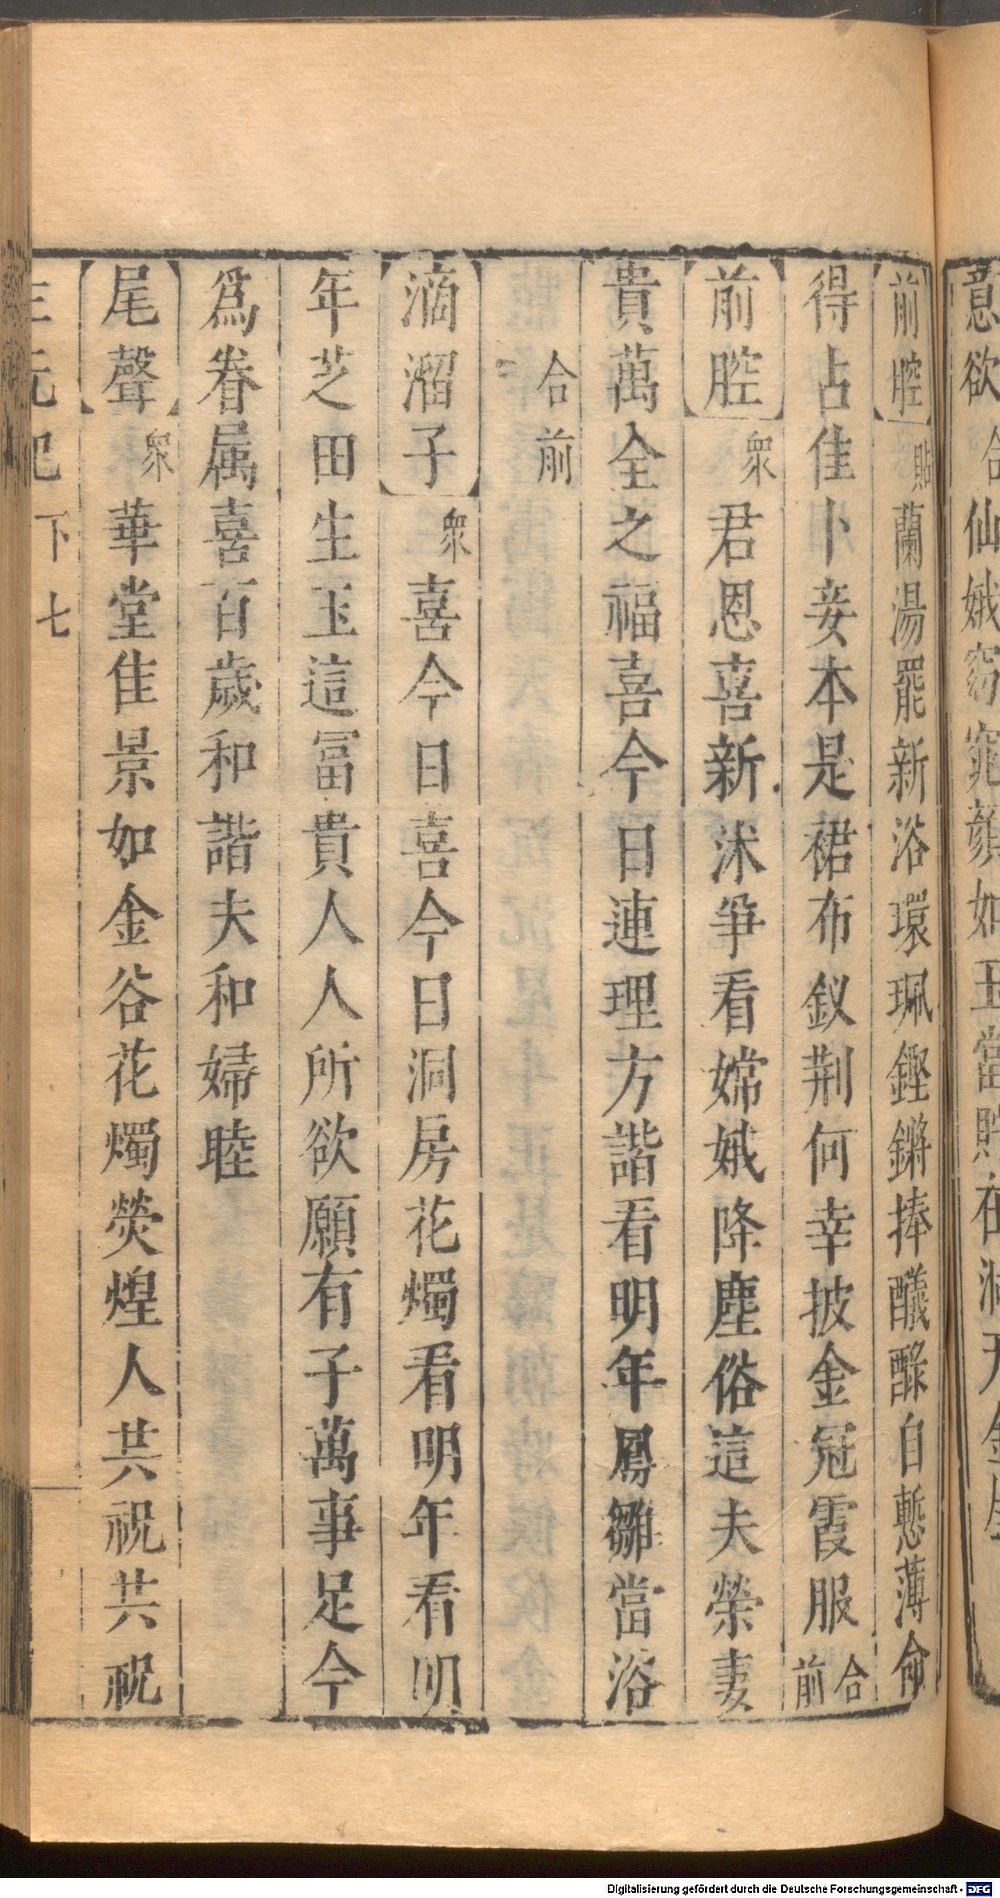 意欲合仙娥窈窕顔如玉當貯在
【前腔】貼蘭湯罷新浴環珮鏗鏘捧醆醁自慙薄命
得占佳卜妾本是裙布釵荆何幸披金冠霞服合前
【前腔】衆君恩喜新沐爭看嫦娥降塵俗這夫榮妻
貴萬全之福喜今日連理方諧看明年鳳雛當浴
合前
【滴溜子】衆喜今日喜今日洞房花燭看明年看明
年芝田生玉這冨貴人人所欲願有子萬事足今
爲眷属喜百歲和諧夫和婦睦
【尾聲】衆華堂佳景如金谷花燭熒煌人共祝共祝
三元記 下 七
Digitalisierung gefördert durch die Deutsche Forschungsgemeinschaft - DFG